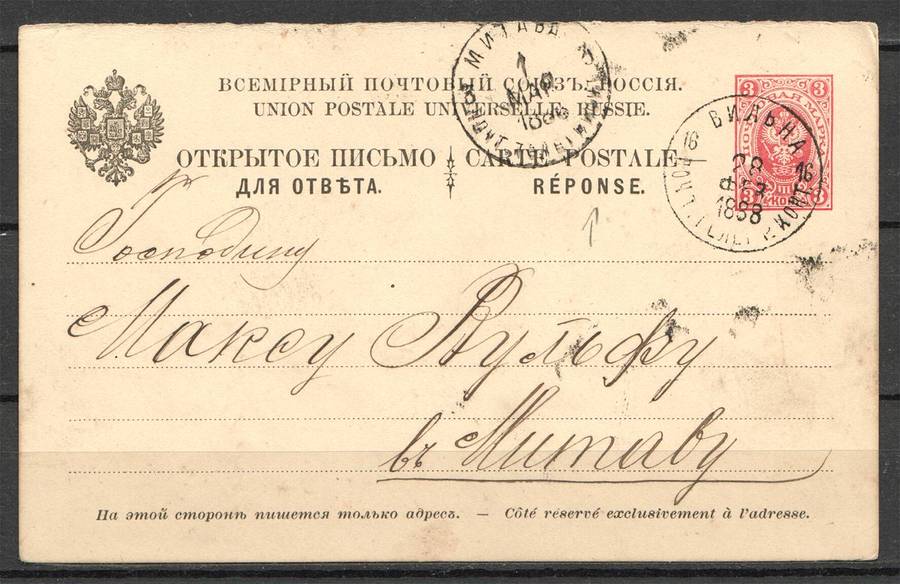 МИТАВА
1
МАР
1888
ВСЕМІРНЫЙ ПОЧТОВЫЙ СОЮЗЪ. РОССІЯ.
UNION POSTALE UNIVERSELLE. RUSSIE.
ОТКРЫТОЕ ПИСЬМО
CARTE POSTALE
ДЛЯ ОТВѢТА.
RÉPONSE.
3 3
ПОЧТОВАЯ МАРКА
3 КОП. 3
ВИЛЬНА
28
ФЕВ
1888
16
Господину
Максу Вульфу
въ Митаву
На этой сторонѣ пишется только адресъ. — Côté réservé exclusivement à l'adresse.